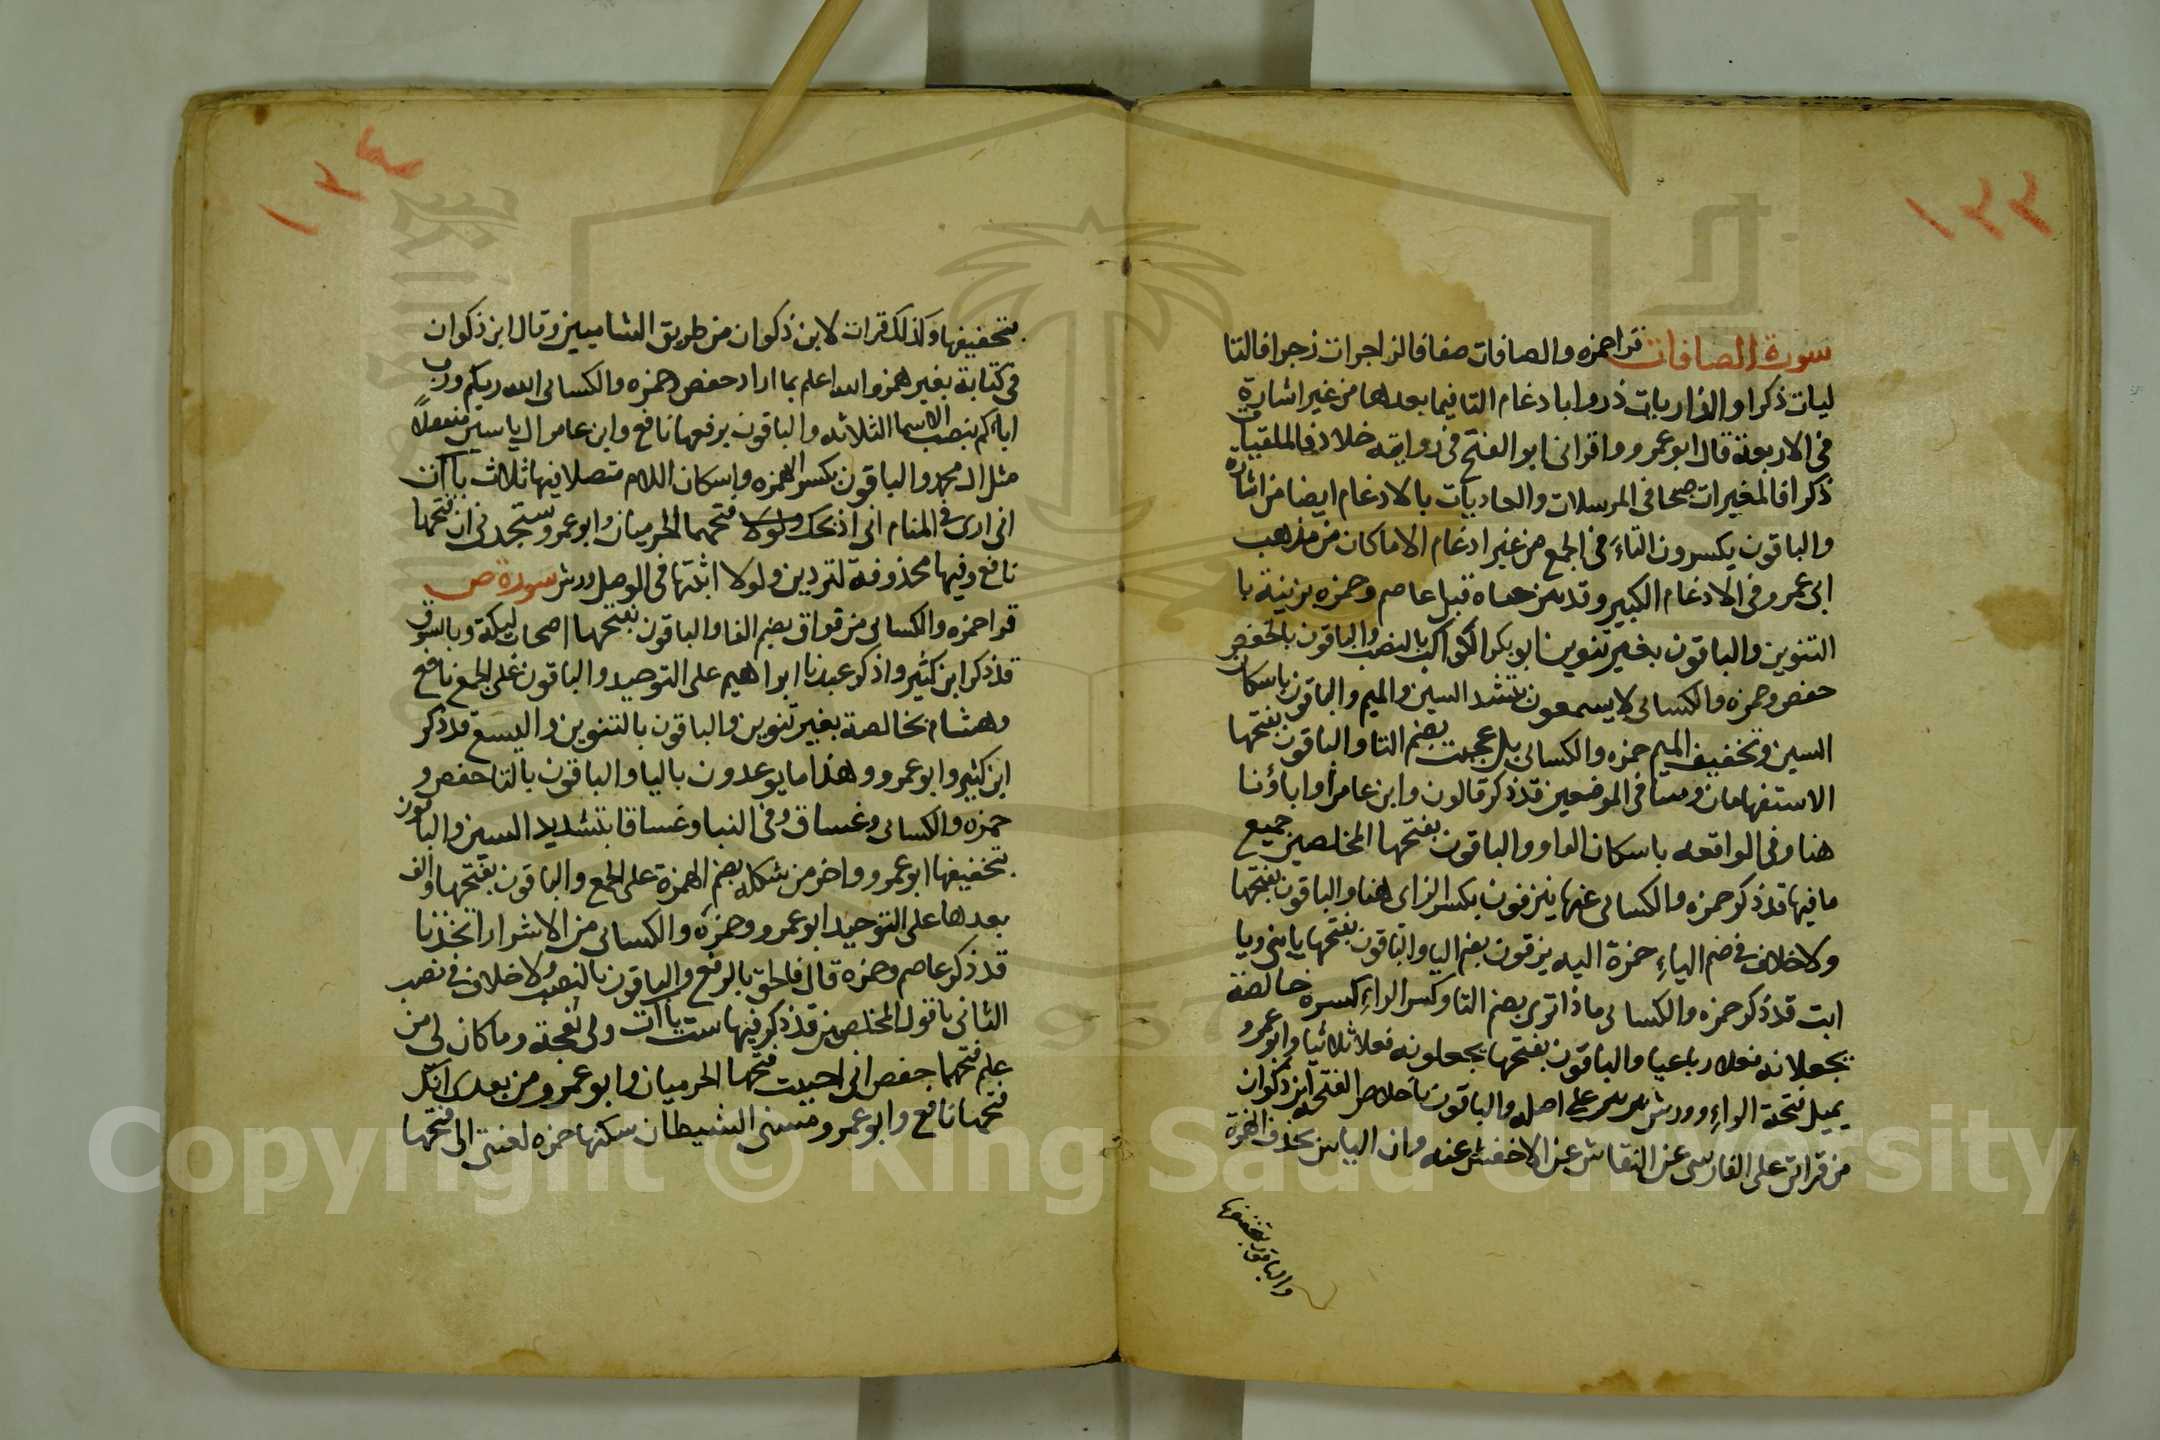 ١٢٣
سورة الصافات قرا حمزه والصافات صفا فالزاجرات زجرا فالتا
ليات ذكرا والذاريات ذروا بادغام التا فيما بعدها من غير اشارة
في الاربعة قال ابو عمرو واقراني ابو الفتح في رواية خلاد فالملقيات
ذكرا فالمغيرات صبحا في المرسلات والعاديات بالادغام ايضا من اشارة
والباقون يكسرون التاء في الجمع من غير ادغام الا ما كان من مذهب
ابي عمرو في الادغام الكبير وقد بين هناه قبل عاصم وحمزه بزينة با
التنوين والباقون بغير تنوين ابو بكر الكواكب بالنصب والباقون بالخفض
حفص وحمزه والكساى لا يسمعون بتشد السين والميم والباقون باسكان
السين وتخفيف الميم حمزه والكساى بل عجبت بضم التا والباقون بفتحها
الاستفهامان ومتنا في الموضعين قد ذكر قالون وابن عامر اواباؤنا
هنا وفي الواقعه باسكان الواو والباقون بفتحها المخلصين جميع
ما فيها قد ذكر حمزه والكساى عنها ينزفون بكسر الزاى هنا والباقون بفتحها
ولا خلاف في ضم الياء حمزة اليه يزفون بضم اليا والباقون بفتحها يابنى ويا
ابت قد ذكر حمزه والكساى ماذا ترى بضم التا وكسر الراء كسرة خالصة
يجعلانه فعلا رباعيا والباقون بفتحها يجعلونه فعلا ثلاثيا وابو عمرو
يميل فتحة الراء وورش بين بين على اصله والباقون باخلاص الفتحه ابن ذكوان
من قراتى على الفارسى عن النقاش عن الاخفش عنه وان الياس بحذف الهمزة
والباقون بتحقيقها
١٢٤
بتحقيقها وكذلك قرات لابن ذكوان من طريق الشاميين وقال ابن ذكوان
في كتابة بغير همز والله اعلم بما اراد حفص وحمزه والكساى الله ربكم ورب
ابائكم بنصب الاسما الثلاثه والباقون برفعها نافع وابن عامر ال ياسين منفصلا
مثل ال محمد والباقون بكسر الهمزه واسكان اللام متصلا فيها ثلاث باآت
انى ارى في المنام انى اذبحك ولولا فتحهما الحرميان وابو عمرو ستجدنى ان فتحها
نافع وفيها محذوفة لتردين ولولا اثبتها في الوصل ورش سورة ص
قرا حمزه والكساى من فواق بضم الفا والباقون بفتحها اصحاب ليكة وبالسوق
قد ذكر ابن كثير واذكر عبدنا ابراهيم على التوحيد والباقون على الجمع نافع
وهشام بخالصة بغير تنوين والباقون بالتنوين واليسع قد ذكر
ابن كثير وابو عمرو وهذا ما يوعدون باليا والباقون بالتا حفص و
حمزه والكساى وغساق وفي النبا وغساقا بتشديد السين والباقون
بتخفيفها ابو عمرو واخر من شكله بضم الهمزة على الجمع والباقون بفتحها والف
بعدها على التوحيد ابو عمرو وحمزه والكساى من الاشرار اتخذنا
قد ذكر عاصم وحمزه قال فالحق بالرفع والباقون بالنصب ولا خلاف في نصب
الثانى باقول المخلصين قد ذكر فيها ست ياآت ولى نعجة وما كان لى من
علم فتحهما حفص انى احببت فتحها الحرميان وابو عمرو من بعدى انك
فتحها نافع وابو عمرو مسنى الشيطان سكنها حمزه لعنتى الى فتحها
Copyright © King Saud University
1957